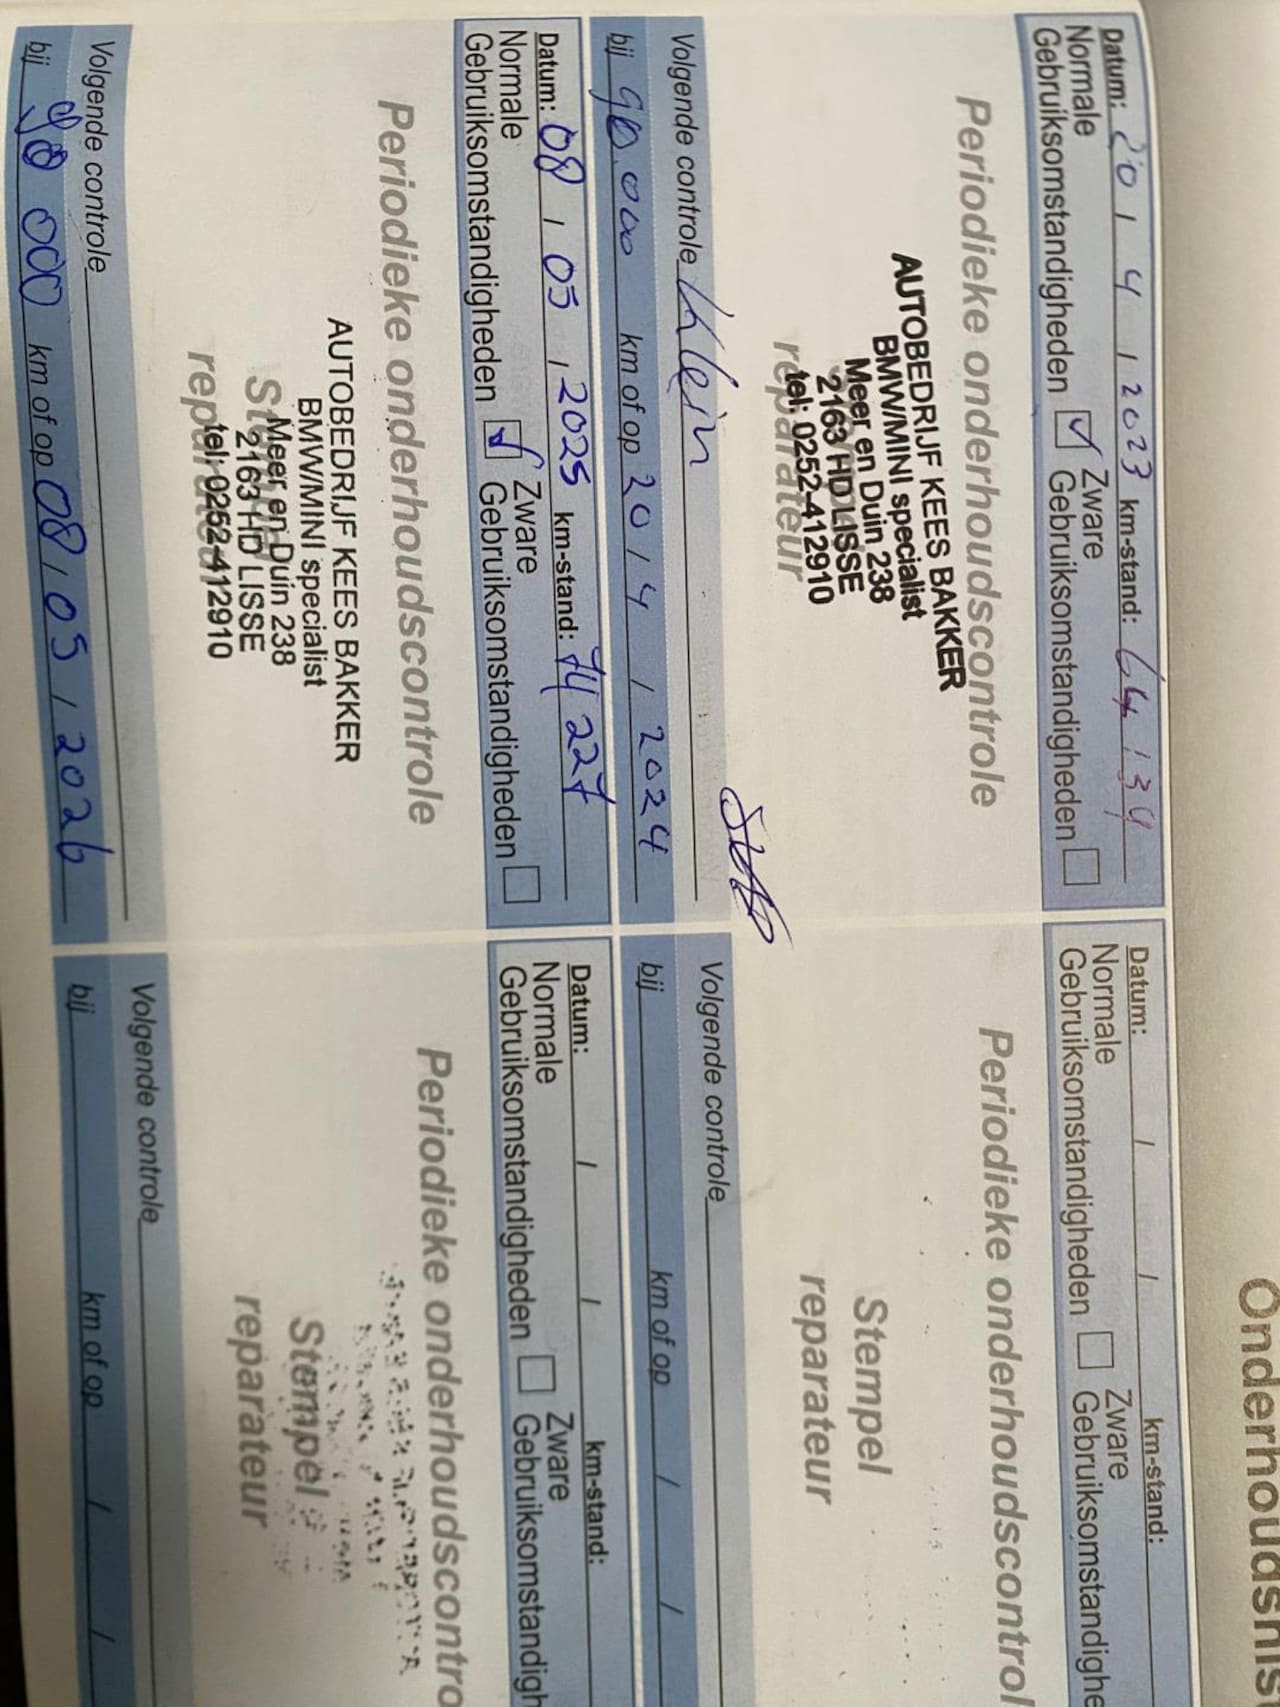 Onderhoudshis
Datum: 20 / 4 / 2023 km-stand: 64134
Normale Zware
Gebruiksomstandigheden Gebruiksomstandigheden
Periodieke onderhoudscontrole
AUTOBEDRIJF KEES BAKKER
BMW/MINI specialist
Meer en Duin 238
2163 HD LISSE
tel: 0252-412910
reparateur
Volgende controle Klein
bij 90.000 km of op 20 / 4 / 2024
Datum: 08 / 05 / 2025 km-stand: 74 227
Normale Zware
Gebruiksomstandigheden Gebruiksomstandigheden
Periodieke onderhoudscontrole
AUTOBEDRIJF KEES BAKKER
BMW/MINI specialist
Meer en Duin 238
2163 HD LISSE
tel: 0252-412910
reparateur
Volgende controle
bij 90 000 km of op 08 / 05 / 2026
Datum: / / km-stand:
Normale Zware
Gebruiksomstandigheden Gebruiksomstandighe
Periodieke onderhoudscontrol
Stempel
reparateur
Volgende controle
bij km of op / /
Datum: / / km-stand:
Normale Zware
Gebruiksomstandigheden Gebruiksomstandigh
Periodieke onderhoudscontro
Stempel
reparateur
Volgende controle
bij km of op / /